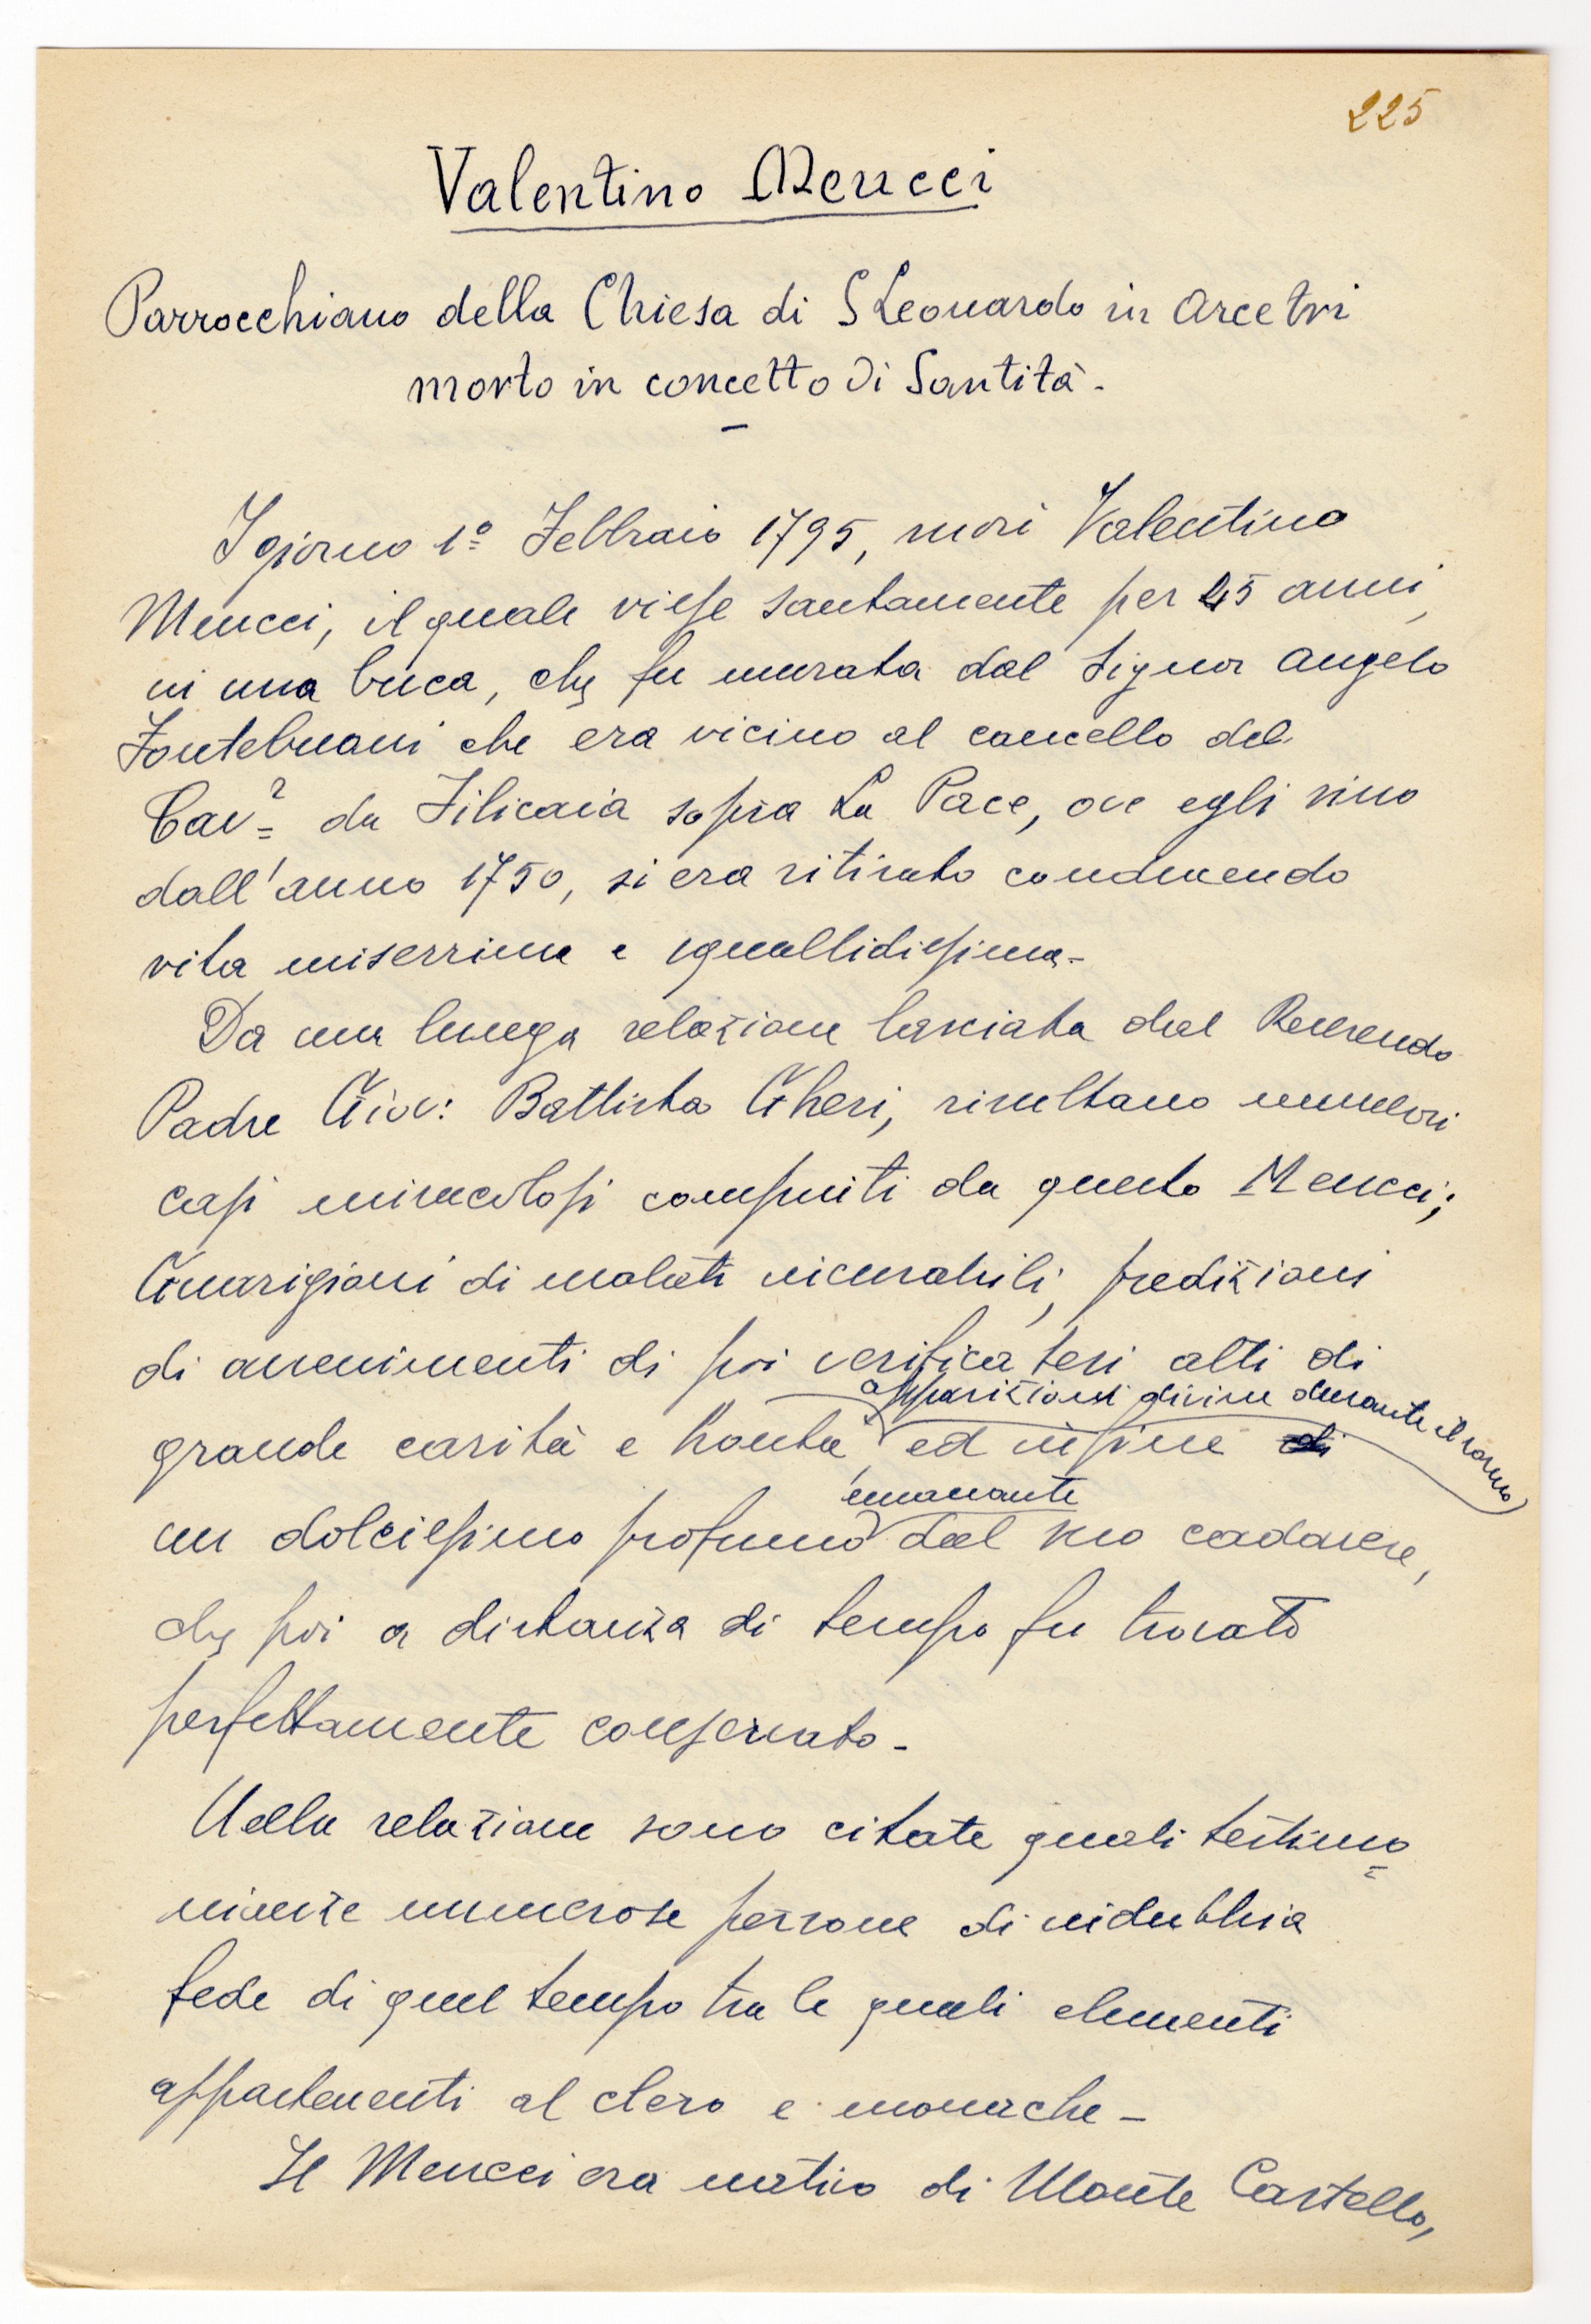 225
Valentino Meucci
Parrocchiano della Chiesa di S Leonardo in Arcetri
morto in concetto di Santità.
Il giorno 1º Febbraio 1795, morì Valentino
Meucci, il quale visse santamente per 45 anni,
in una buca, che fu murata dal Signor Angelo
Fontebuoni che era vicino al cancello del
Cavᵉ da Filicaia sopra La Pace, ove egli sino
dall'anno 1750, si era ritirato conducendo
vita miserrima e squallidissima-
Da una lunga relazione lasciata dal Reverendo
Padre Giov: Battista Gheri, risultano numerosi
casi miracolosi compiuti da questo Meucci;
Guarigioni di malati incurabili, predizioni
di avvenimenti di poi verificatesi atti di
apparizioni divine durante il sonno
grande carità e bontà, ed infine di
emanante
un dolcissimo profumo dal suo cadavere,
che poi a distanza di tempo fu trovato
perfettamente conservato-
Nella relazione sono citate quali testimo=
nianze numerose persone di indubbia
fede di quel tempo tra le quali elementi
appartenenti al clero e monache-
Il Meucci era nativo di Monte Castello,